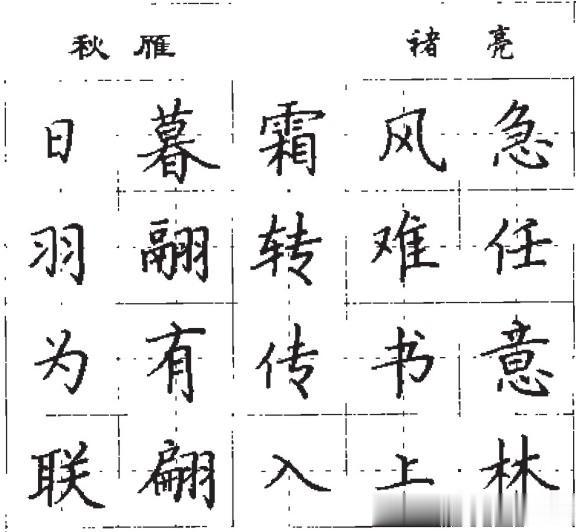 秋雁 褚亮
日暮霜风急
羽翮转难任
为有传书意
联翩入上林